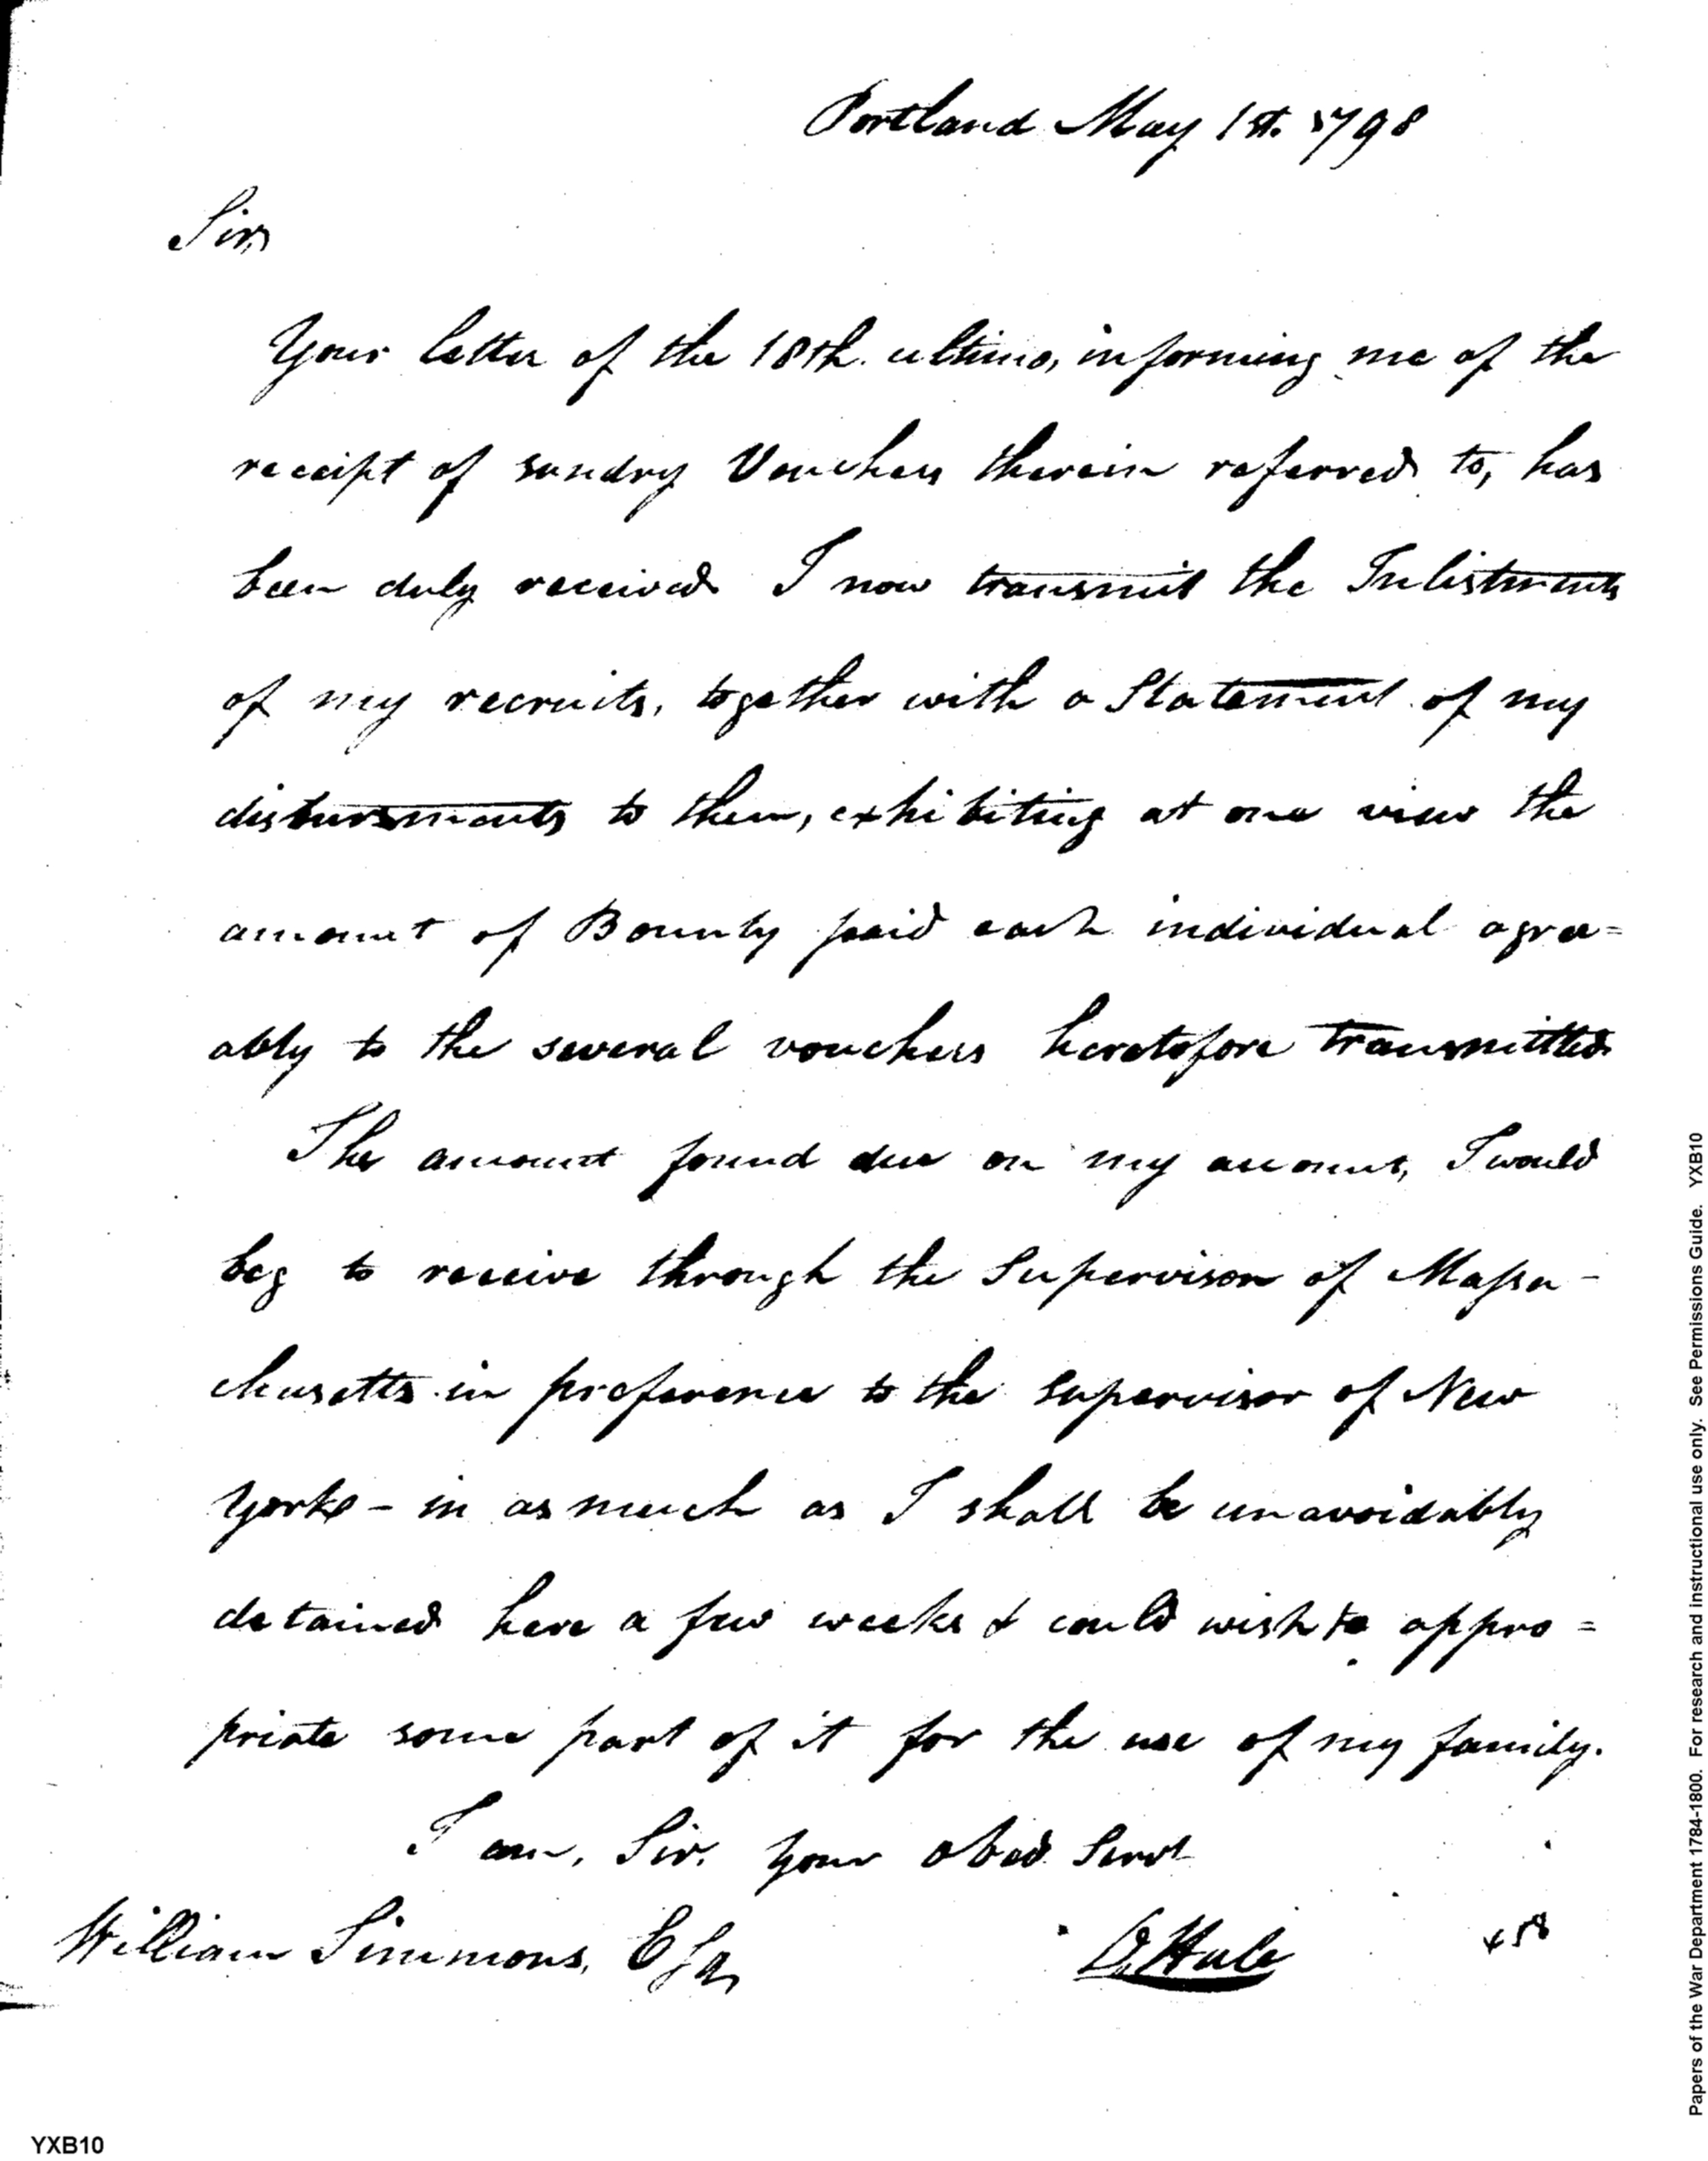 Portland May 1st. 1798
Sir,
Your letter of the 18th. ultimo, informing me of the
receipt of sundry Vouchers therein referred to, has
been duly received I now transmit the Inlistments
of my recruits, together with a Statement of my
disbursments to them, exhibiting at one view the
amount of Bounty paid each individual agree=
ably to the several vouchers heretofore transmitted
The amount found due on my account, I would
beg to receive through the Supervisor of Massa-
chusetts in preference to the Supervisor of New
York - in as much as I shall be unavoidably
detained here a few weeks & could wish to appro=
priate some part of it for the use of my family.
I am, Sir, your obed Servt
William Simmons, Esq,
Hale
458
YXB10
Papers of the War Department 1784-1800. For research and instructional use only. See Permissions Guide. YXB10